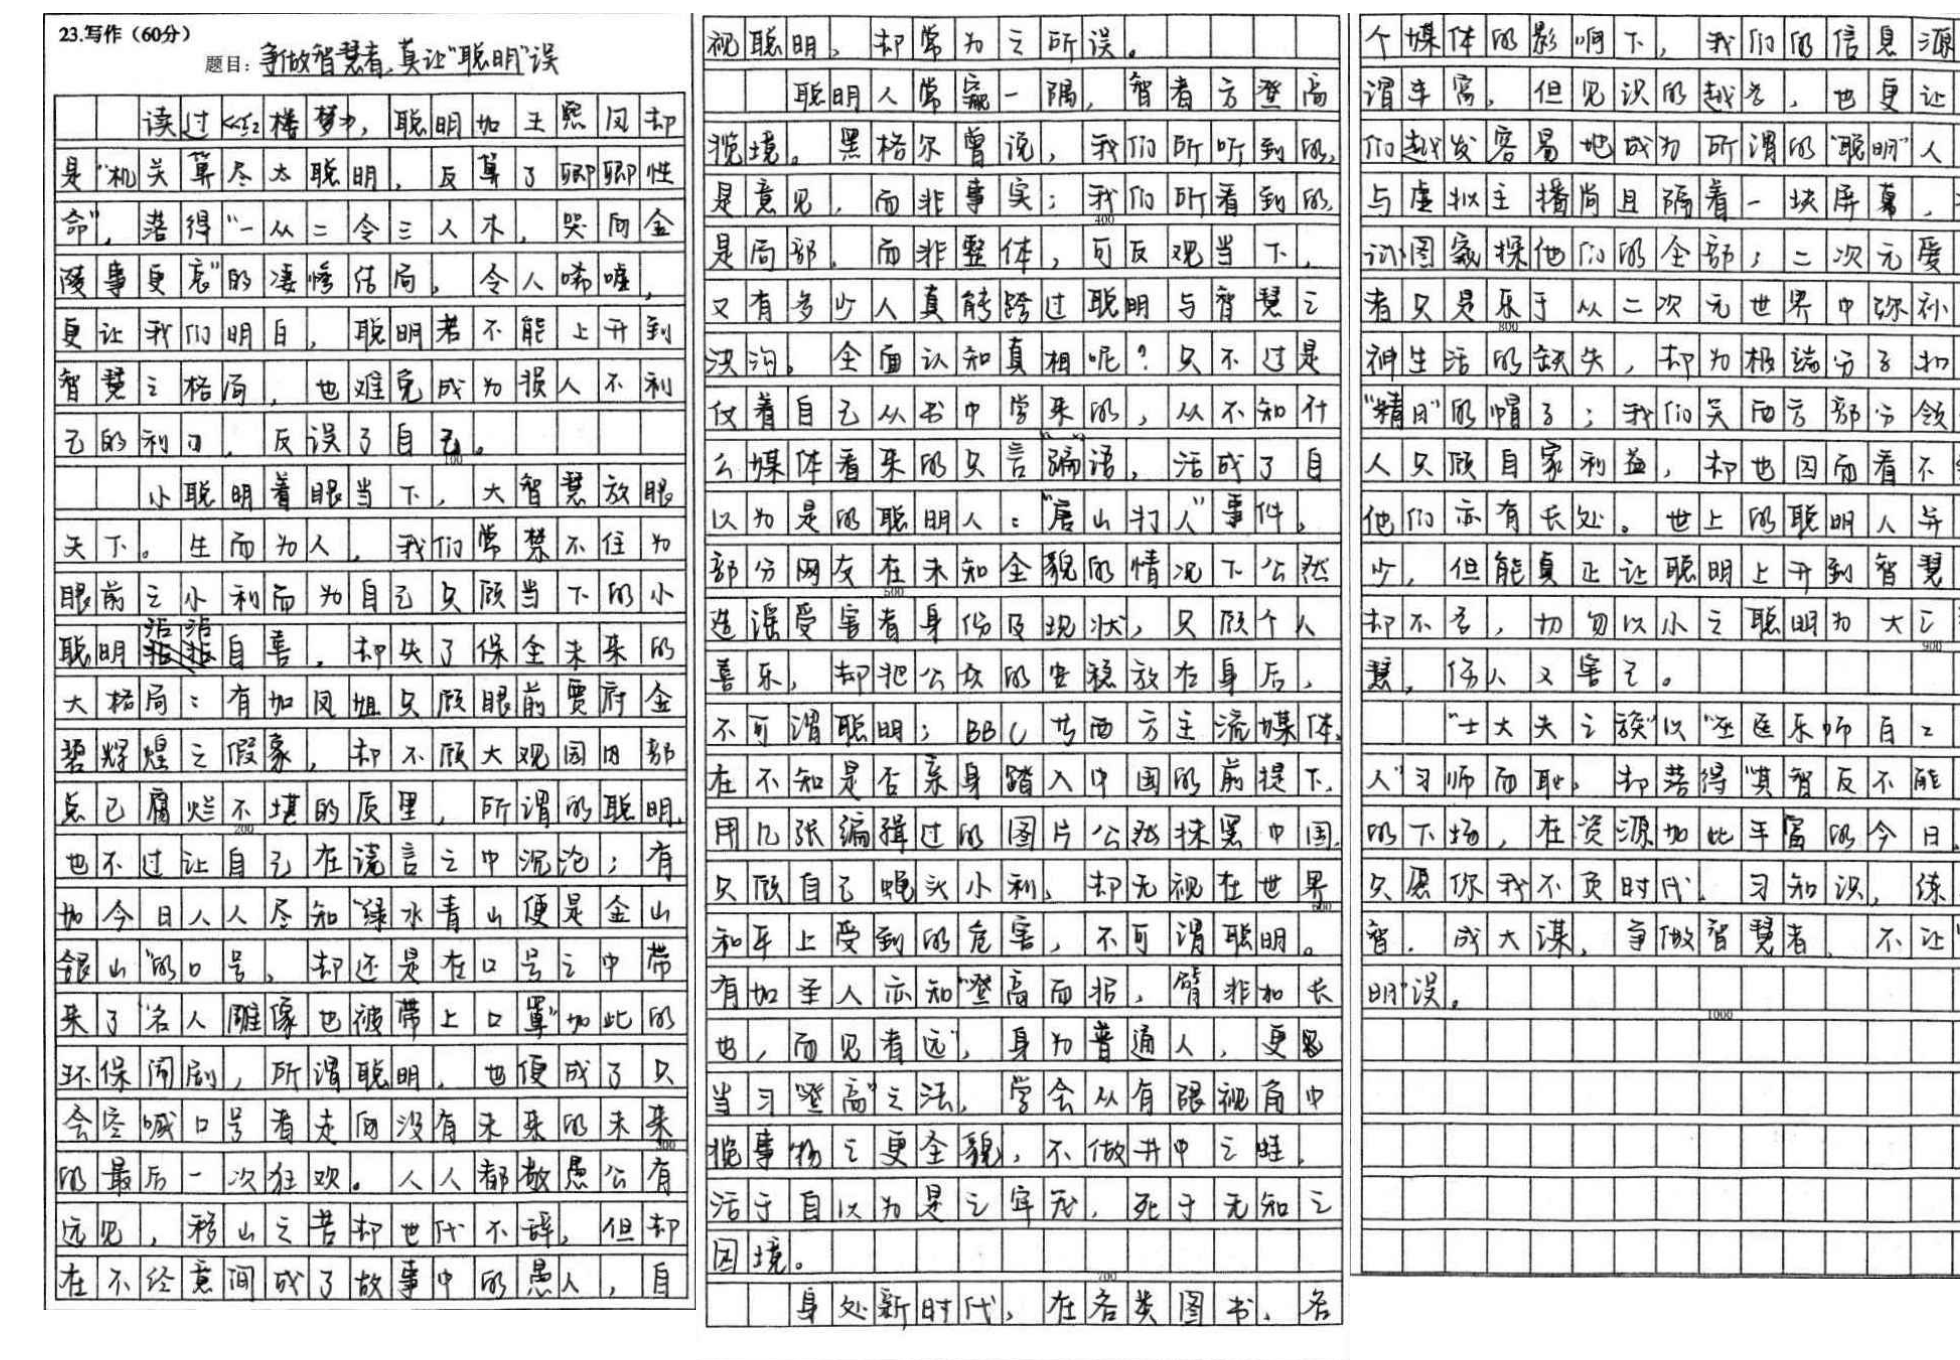 23.写作（60分）
题目：争做智慧者,莫让"聪明"误
读过《红楼梦》，聪明如王熙凤却
是"机关算尽太聪明，反算了卿卿性
命"，落得"一从二令三人木，哭向金
陵事更哀"的凄惨结局，令人唏嘘，
更让我们明白，聪明若不能上升到
智慧之格局，也难免成为损人不利
己的利刃，反误了自己。
100
小聪明着眼当下，大智慧放眼
天下。生而为人，我们常禁不住为
眼前之小利而为自己只顾当下的小
聪明沾沾自喜，却失了保全未来的
大格局：有如凤姐只顾眼前贾府金
碧辉煌之假象，却不顾大观园内部
总已腐烂不堪的质里，所谓的聪明，
200
也不过让自己在谎言之中沉沦；有
如今日人人尽知"绿水青山便是金山
银山"的口号，却还是在口号之中带
来了"名人雕像也被带上口罩"如此的
环保闹剧，所谓聪明，也便成了只
会空喊口号者走向没有未来的未来
300
的最后一次狂欢。人人都敬愚公有
远见，移山之苦却世代不辞，但却
在不经意间成了故事中的愚人，自
视聪明，却常为之所误。
聪明人常窥一隅，智者方登高
揽境。黑格尔曾说，我们所听到的，
是意见，而非事实；我们所看到的，
400
是局部，而非整体，可反观当下，
又有多少人真能跨过聪明与智慧之
决沟。全面认知真相呢？只不过是
仗着自己从书中学来的，从不知什
么媒体看来的只言"骗"语，活成了自
以为是的聪明人："唐山打人"事件，
部分网友在未知全貌的情况下公然
500
造谣受害者身份及现状，只顾个人
喜乐，却把公众的安稳放在身后，
不可谓聪明；BBC等西方主流媒体，
在不知是否亲身踏入中国的前提下，
用几张编辑过的图片公然抹黑中国，
只顾自己蝇头小利，却无视在世界
600
和平上受到的危害，不可谓聪明。
有如圣人亦知"登高而招，臂非加长
也，而见者远"，身为普通人，更
当习"登高"之法，学会从有限视角中
揽事物之更全貌，不做井中之蛙，
活于自以为是之牢笼，死于无知之
困境。
700
身处新时代，在各类图书、各
个媒体的影响下，我们的信息源
谓丰富，但见识的越多，也更让
们越发容易地成为所谓的"聪明"人
与虚拟主播尚且隔着一块屏幕，
试图窥探他们的全部；二次元爱
者只是乐于从二次元世界中弥补
800
神生活的缺失，却为极端分子扣
"精日"的帽子；我们笑西方部分领
人只顾自家利益，却也因而看不
他们亦有长处。世上的聪明人并
少，但能真正让聪明上升到智慧
却不多，切勿以小之聪明为大之
900
慧，伤人又害己。
"士大夫之族"以"巫医乐师百工
人"习师而耻，却落得"其智反不能
的下场，在资源如此丰富的今日，
只愿你我不负时代，习知识，练
智，成大谋，争做智慧者，不让"
明"误。
1000